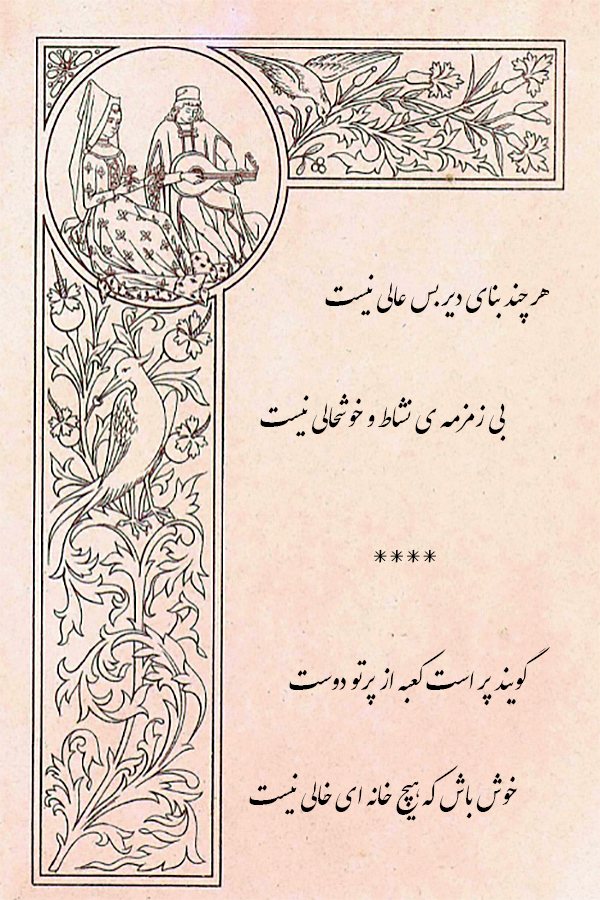 هر چند بنای دیر بس عالی نیست
بی زمزمه ی نشاط و خوشحالی نیست
****
گویند پر است کعبه از پرتو دوست
خوش باش که هیچ خانه ای خالی نیست